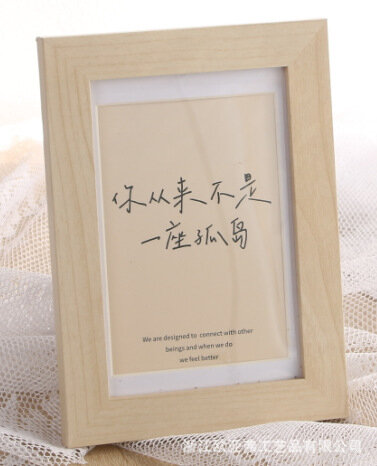 你从来不是
一座孤岛
We are designed to connect with other
beings and when we do
we feel better